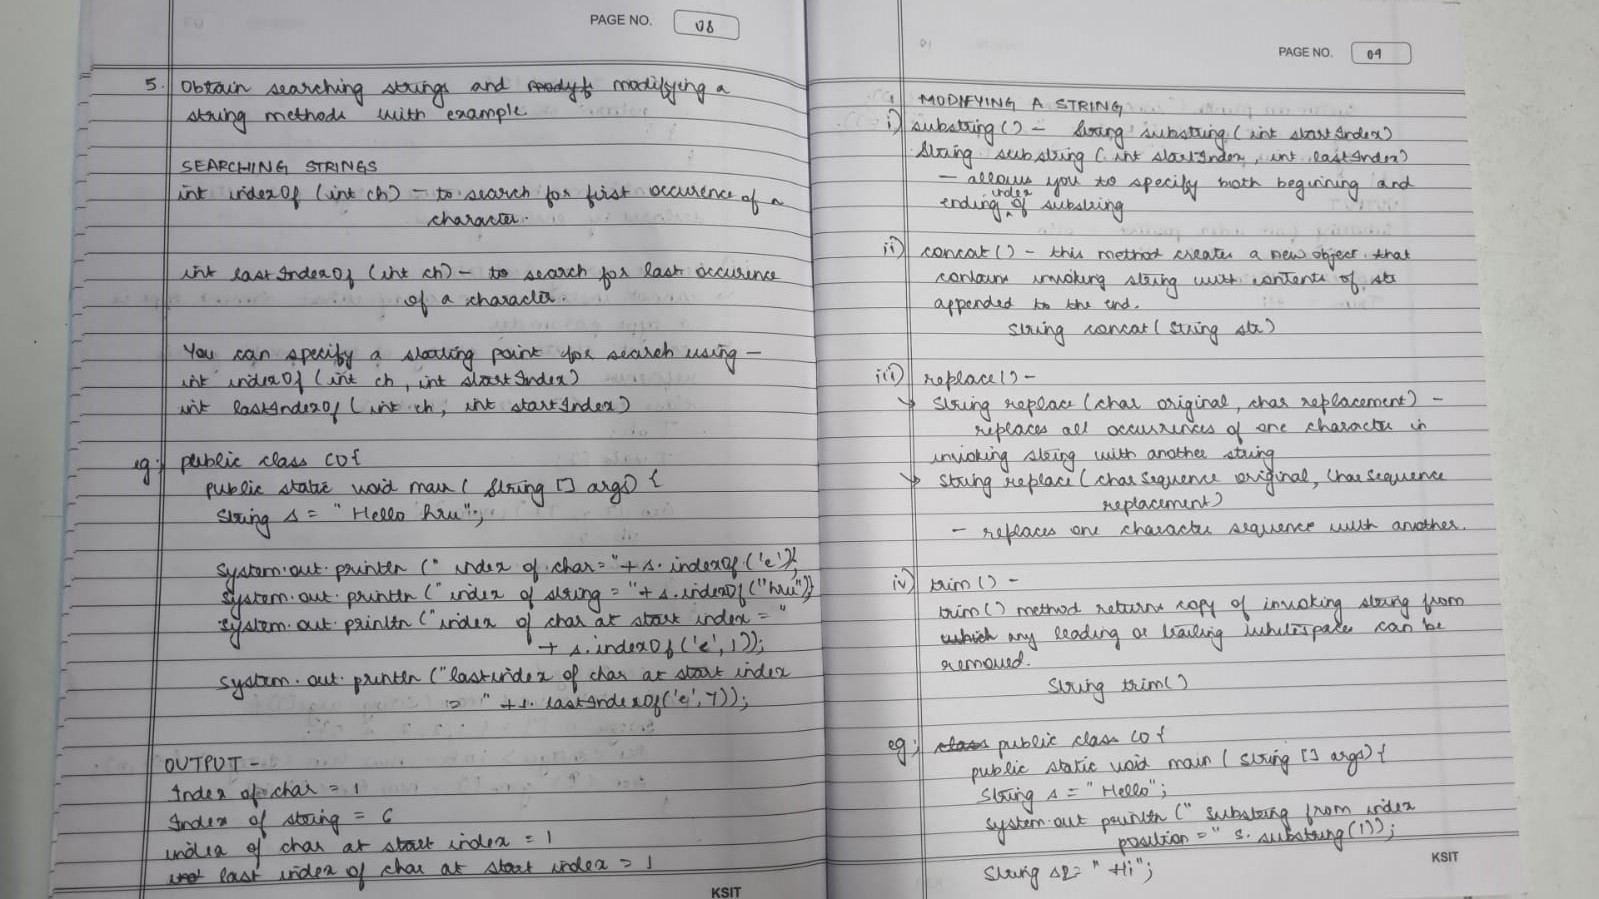 PAGE NO. 08
5. Obtain searching strings and modifying a
string methods with example
SEARCHING STRINGS
int indexOf (int ch) - to search for first occurence of a
character.
int lastIndexOf (int ch) - to search for last occurence
of a character.
You can specify a starting point for search using -
int indexOf (int ch, int startIndex)
int lastIndexOf (int ch, int startIndex)
eg: public class CO{
public static void main ( String [] args) {
String s = "Hello hru";
System.out.println (" index of char="+ s.indexOf('e'));
System.out.println ("index of string = "+ s.indexOf("hru"));
System.out.println ("index of char at start index = "
+ s.indexOf('e',1));
System.out.println ("lastindex of char at start index
= " +s.lastIndexOf('e',7));
OUTPUT -
Index of char = 1
Index of string = 6
index of char at start index = 1
last index of char at start index = 1
KSIT
PAGE NO. 09
MODIFYING A STRING
i) substring() - String substring( int startIndex)
String substring( int startIndex, int lastIndex)
- allows you to specify both beginning and
ending index of substring
ii) concat() - this method creates a new object that
contains invoking string with contents of str
appended to the end.
String concat( String str)
iii) replace() -
String replace (char original, char replacement) -
replaces all occurrences of one character in
invoking string with another string
String replace ( charSequence original, CharSequence
replacement)
- replaces one character sequence with another.
iv) trim () -
trim() method returns copy of invoking string from
which any leading or trailing whitespace can be
removed.
String trim()
eg; class public class CO{
public static void main ( String [] args) {
String s = "Hello";
System.out println (" Substring from index
position =" s.substring(1));
String s2= "Hi";
KSIT